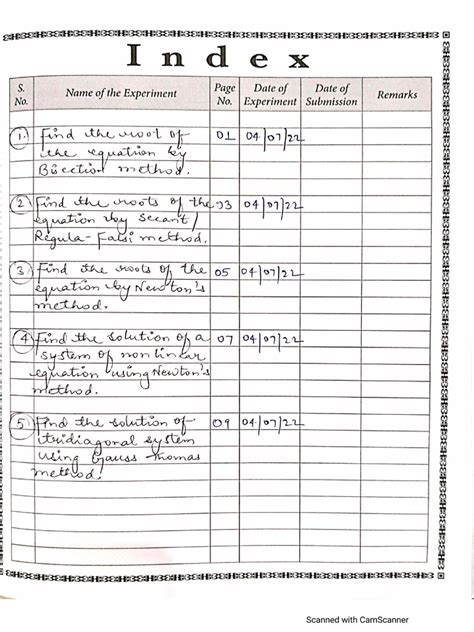 Index
S. No. Name of the Experiment Page No. Date of Experiment Date of Submission Remarks
1. Find the root of 01 04/07/22
the equation by
Bisection method.
2 Find the roots of the 03 04/07/22
equation by secant/
Regula-Falsi method.
3. Find the roots of the 05 04/07/22
equation by Newton's
method.
4 Find the solution of a 07 04/07/22
system of non linear
equation using Newton's
method.
5. Find the solution of 09 04/07/22
tridiagonal system
using Gauss Thomas
method.
Scanned with CamScanner